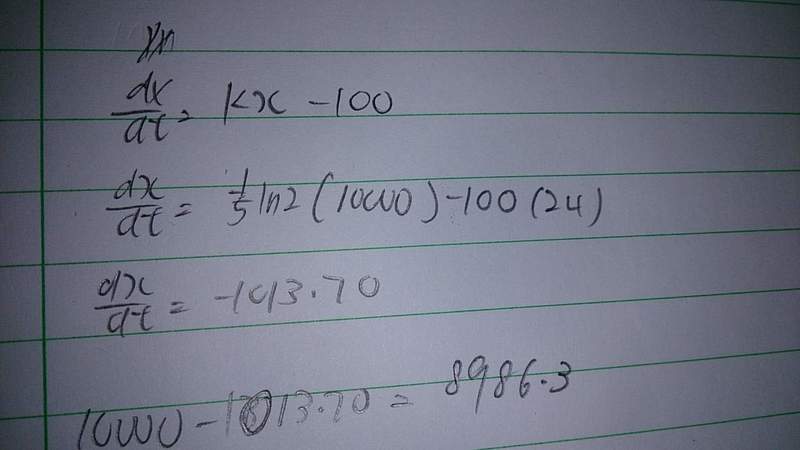 dx/dt = kx - 100
dx/dt = 1/5 ln2 (10000) - 100 (24)
dx/dt = -1013.70
10000 - 1013.70 = 8986.3